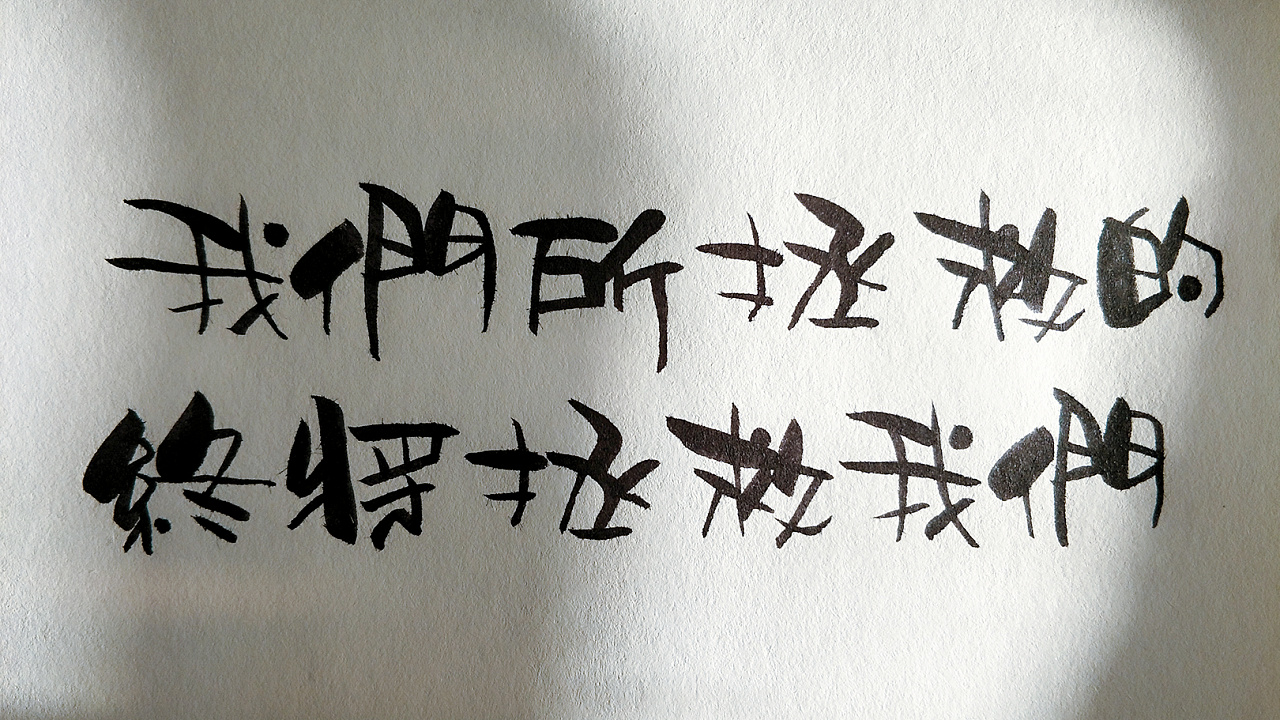 我們所拯救的
終將拯救我們